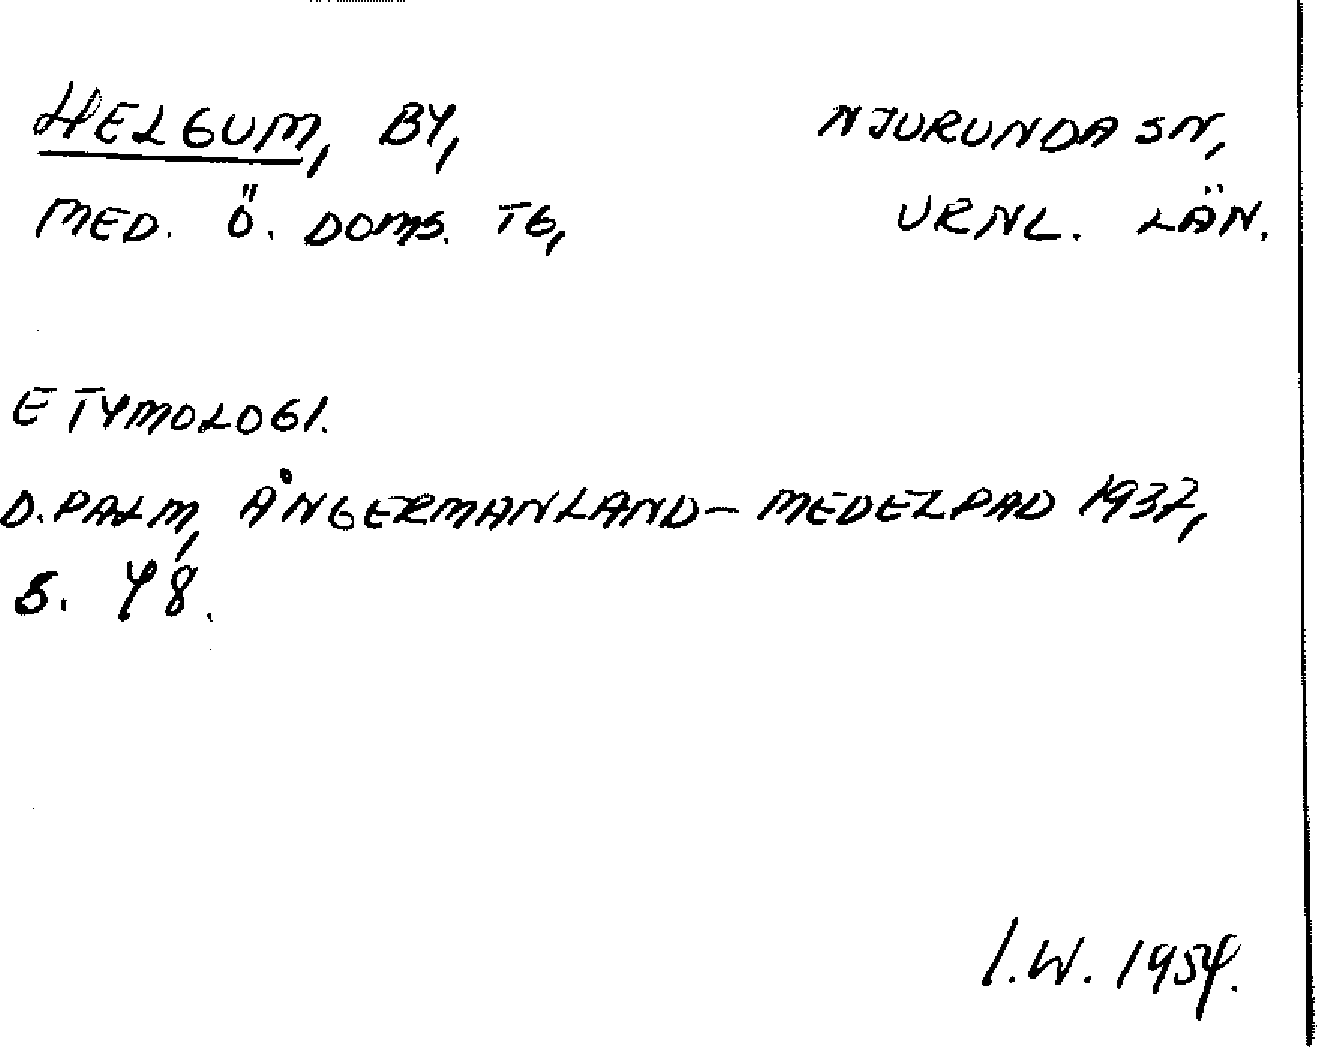 HELGUM, BY, NJURUNDA SN,
MED. Ö. DOMS. TG, VRNL. LÄN.
ETYMOLOGI.
D. PALM, ÅNGERMANLAND - MEDELPAD 1937,
S. 48.
I.W. 1954.